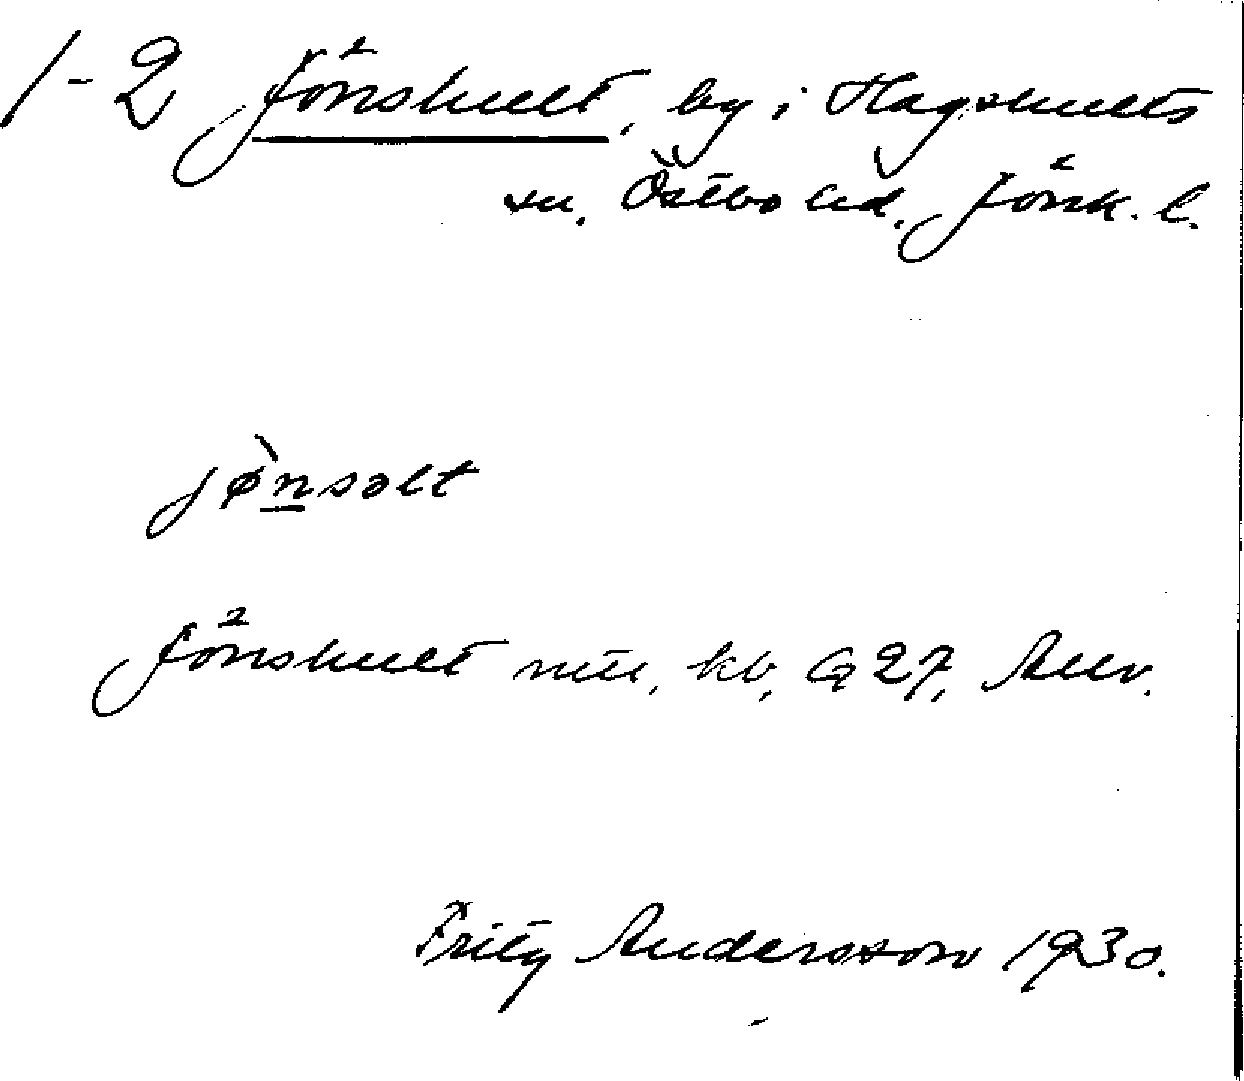 1-2 Jönshult, by i Hagshults
sn. Östbo hd. Jönk. l.
jø̀nsəlt
Jönshult mtl, kb, G 27, Allv.
Fritz Andersson 1930.